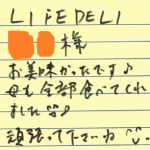 LIFEDELI
様
お美味かったです♪
母も全部食べてくれ
ました
頑張って下さいね